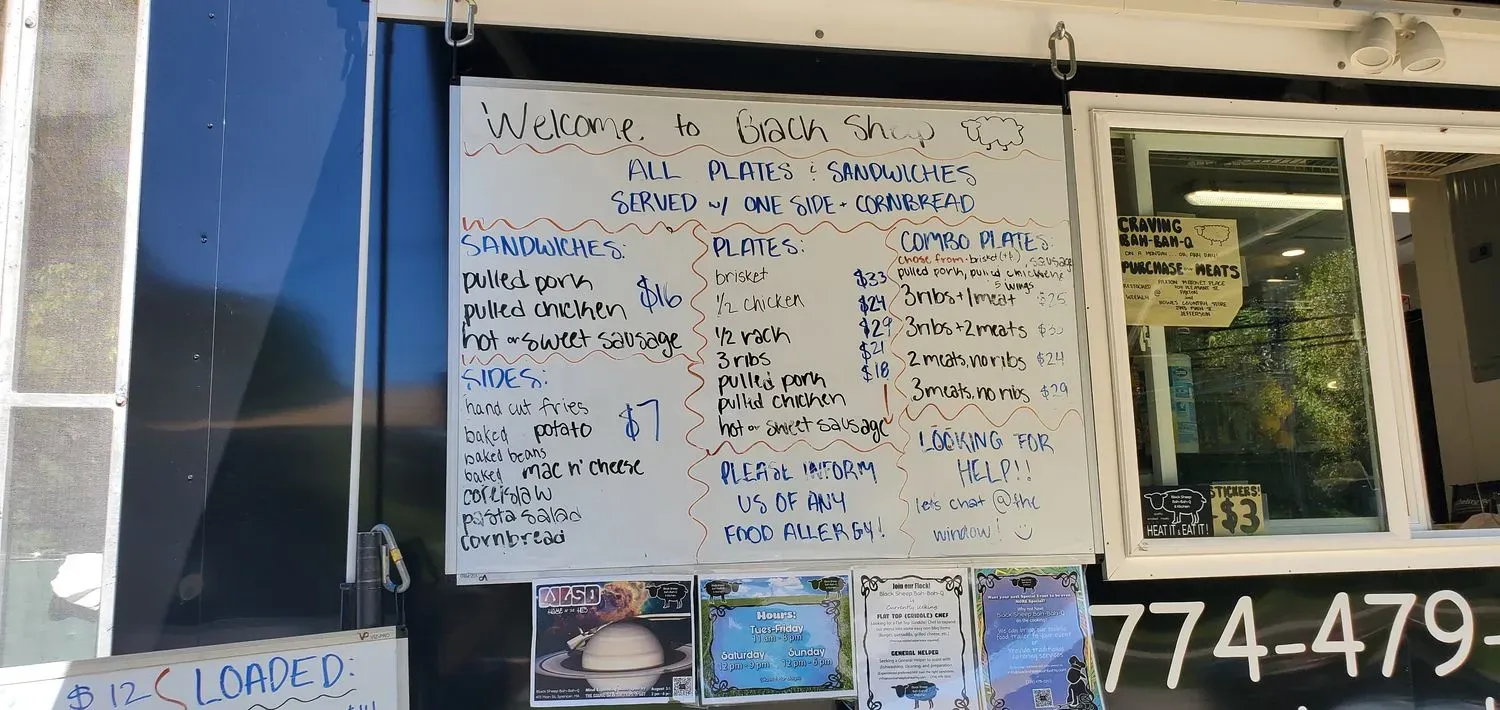 Welcome to Black Sheep
ALL PLATES & SANDWICHES
SERVED w/ ONE SIDE + CORNBREAD
SANDWICHES:
pulled pork
pulled chicken $16
hot or sweet sausage
SIDES:
hand cut fries
baked potato $7
baked beans
baked mac n' cheese
coleslaw
pasta salad
cornbread
PLATES:
brisket $33
1/2 chicken $24
1/2 rack $29
3 ribs $21
pulled pork $18
pulled chicken
hot or sweet sausage
PLEASE INFORM
US OF ANY
FOOD ALLERGY!
COMBO PLATES:
chose from: brisket, sausage
pulled pork, pulled chicken
5 wings
3 ribs + 1 meat $25
3 ribs + 2 meats
2 meats, no ribs $24
3 meats, no ribs $29
LOOKING FOR
HELP!!
let's chat @ the
window!
CRAVING
BAH-BAH-Q
ON A MONDAY... OR ANY DAY!
PURCHASE MEATS
RESTOCKED
WEEKLY
PAXTON
JEFFERSON
Black Sheep
Bah-Bah-Q
& Kitchen
HEAT IT & EAT IT!
STICKERS!
$3
774-479-
$12 LOADED:
Black Sheep Bah-Bah-Q
Hours:
Tues-Friday
11 am - 8 pm
Saturday Sunday
12 pm - 8 pm 12 pm - 6 pm
Join our Flock!
Black Sheep Bah-Bah-Q
is
Currently seeking
FLAT TOP (GRIDDLE) CHEF
GENERAL HELPER